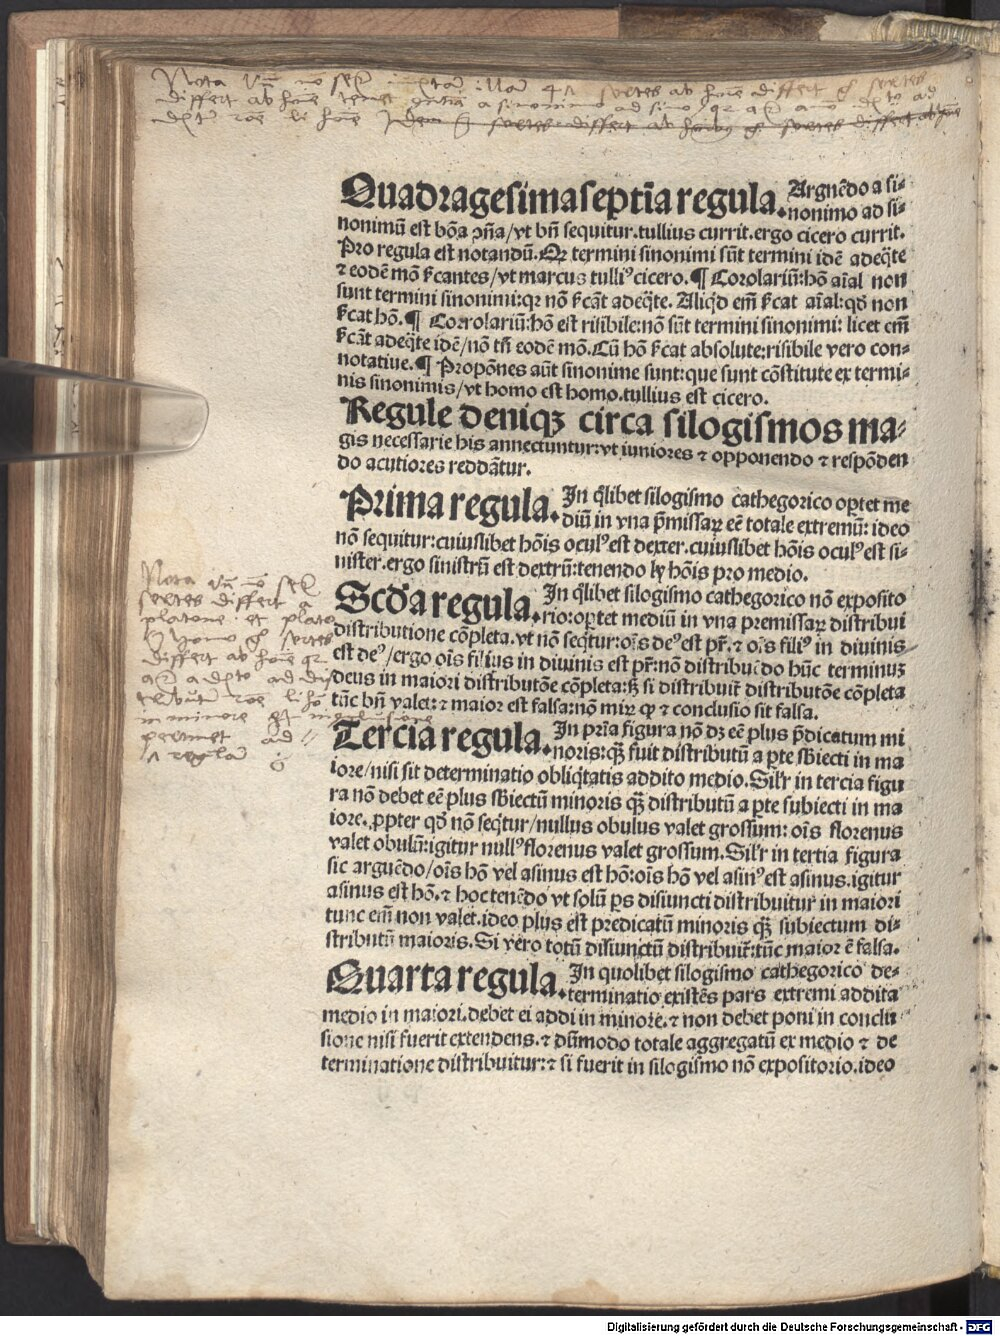 Nota
differt ab
Quadragesima septĩa regula. Arguẽdo a si-
nonimo ad si-
nonimũ est bõa ꝯñа/vt bñ sequitur.tullius currit.ergo cicero currit.
Pro regula est notandũ. Qꝛ termini sinonimi sũt termini idẽ adeq̃te
⁊ eodẽ mõ ẜcantes/vt marcus tulliꝰ cicero. ¶ Corolariũ:hõ aĩal non
sunt termini sinonimi:qꝛ nõ ẜcãt adeq̃te. Aliqd em̃ ẜcat aĩal:qđ non
ẜcat hõ. ¶ Correlariũ:hõ est risibile:nõ sũt termini sinonimi: licet em̃
ẜcãt adeq̃te idẽ/nõ tñ eodẽ mõ. Cũ hõ ẜcat absolute:risibile vero con-
notatiue. ¶ Propõnes aũt sinonime sunt:que sunt cõstitute ex termi-
nis sinonimis/vt homo est homo.tullius est cicero.
Regule deniqꝫ circa silogismos ma-
gis necessarie his annectuntur:vt iuniores ⁊ opponendo ⁊ respõden
do acutiores reddãtur.
Prima regula. In q̃libet silogismo cathegorico oꝑtet me
diũ in vna p̃missaꝝ eẽ totale extremũ: ideo
nõ sequitur:cuiuslibet hõis oculꝰ est dexter.cuiuslibet hõis oculꝰ est si-
nister.ergo sinistrũ est dextrũ:tenendo ly hõis pro medio.
Scđa regula. In q̃libet silogismo cathegorico nõ exposito
rio:oꝑtet mediũ in vna premissaꝝ distribui
distributione cõpleta.vt nõ seq̃tur:oĩs deꝰ est pr̃.⁊ oĩs filiꝰ in diuinis
est deꝰ/ergo oĩs filius in diuinis est pr̃:nõ distribuẽdo hũc terminuꝫ
deus in maiori distributõe cõpleta:qꝫ si distribuit̃ distributõe cõpleta
tũc bñ valet: ⁊ maior est falsa:nõ mirꝝ ꝙ ⁊ conclusio sit falsa.
Tercia regula. In pr̃ia figura nõ dꝫ eẽ plus p̃dicatum mi
noris:qꝫ fuit distributũ a ꝑte sb̃iecti in ma
iore/nisi sit determinatio obliq̃tatis addito medio. Sil'r in tercia figu
ra nõ debet eẽ plus sb̃iectũ minoris qꝫ distributũ a ꝑte subiecti in ma
iore. ꝓpter qđ nõ seq̃tur/nullus obulus valet grossum: oĩs florenus
valet obulũ:igitur nullꝰ florenus valet grossum. Sil'r in tertia figura
sic arguẽdo/oĩs hõ vel asinus est hõ:oĩs hõ vel asinꝰ est asinus.igitur
asinus est hõ.⁊ hoc tenẽdo vt solũ ꝑs disiuncti distribuitur in maiori
tunc em̃ non valet.ideo plus est predicatũ minoris qꝫ subiectum di-
stributũ maioris. Si vero totũ disiunctũ distribuit̃:tũc maior ẽ falsa.
Quarta regula. In quolibet silogismo cathegorico de-
terminatio existẽs pars extremi addita
medio in maiori.debet ei addi in minore.⁊ non debet poni in conclu
sione nisi fuerit extendens.⁊ dũmodo totale aggregatũ ex medio ⁊ de
terminatione distribuitur:⁊ si fuerit in silogismo nõ expositorio.ideo
Nota
sortes differt a
platone et plato
differt ab
in minore
Digitalisierung gefördert durch die Deutsche Forschungsgemeinschaft - DFG